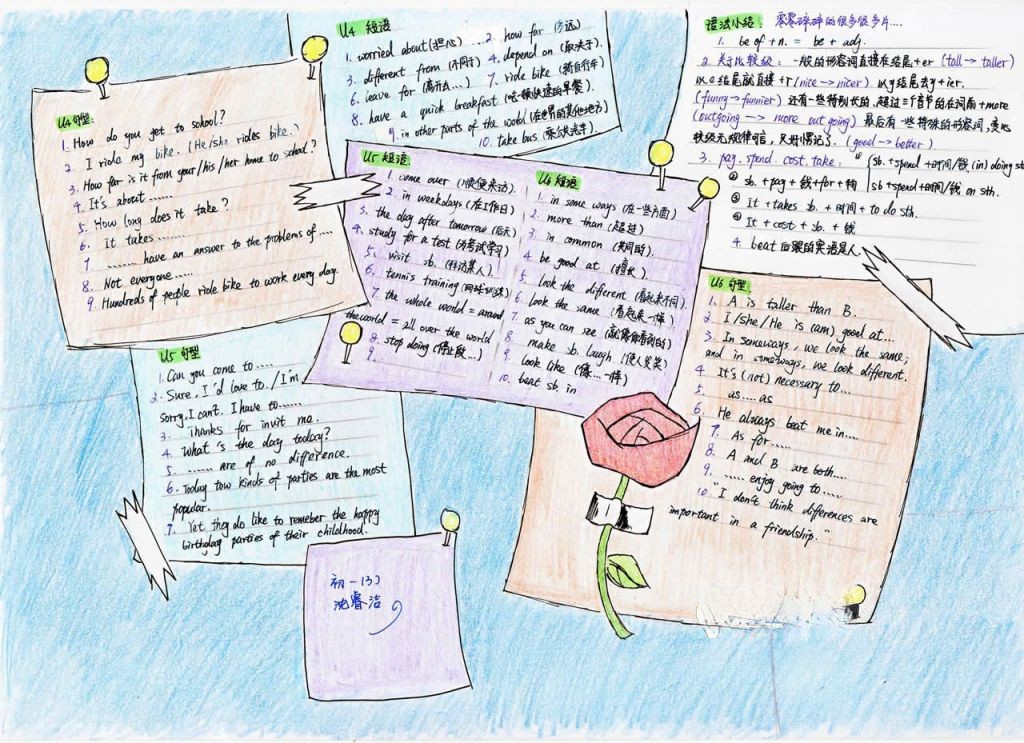 U4 句型:
1. How do you get to school?
2. I ride my bike. (He/she rides bike.)
3. How far is it from your/his/her home to school?
4. It's about ......
5. How long does it take?
6. It takes ........
7 ....... have an answer to the problems of ....
8. Not everyone .....
9. Hundreds of people ride bike to work every day.
U4 短语
1. worried about (担心) ... 2. how far (多远)
3. different from (不同于) 4. depend on (取决于).
6. leave for (离开去...) 7. ride bike (骑自行车
8. have a quick breakfast (吃顿快速的早餐).
9. in other parts of the world (在世界的其他地方)
10. take bus (乘公共汽车).
语法小结: 零零碎碎的很多很多片....
1. be of +n. = be + adj.
2. 关于比较级: 一般的形容词直接在结尾+er (tall → taller)
以e结尾就直接+r (nice → nicer) 以y结尾去y+ier.
(funny → funnier) 还有一些特别长的,超过三个音节的在词前+more
(outgoing → more out going) 最后有一些特殊的形容词,变比
较级无规律可言,只好慢记了. (good → better)
3. pay. spend. cost. take: ① (sb. +spend +时间/钱 (in) doing sth
② sb. + pay + 钱+for+物 sb+spend+时间/钱 on sth.
③ It +takes sb. + 时间 + to do sth.
④ It + cost + sb. + 钱
4. beat 后跟的宾语是人.
U5 短语
1. come over (顺便来访).
2. in weekdays (在工作日)
3. the day after tomorrow (后天)
4. study for a test (为考试学习)
5. visit sb. (拜访某人).
6. tennis training (网球训练)
7. the whole world = around
the world = all over the world
8. stop doing (停止做...)
9.
U6 短语
1. in some ways (在一些方面)
2. more than (超过)
3. in common (共同的).
4. be good at (擅长).
5. look the different (看起来不同)
6. look the same (看起来一样)
7. as you can see (就像你看到的)
8. make sb. laugh (使人发笑)
9. look like (像...一样)
10. beat sb. in
U5 句型
1. Can you come to .....
2. Sure, I'd love to. / I'm
sorry, I can't. I have to ......
3. Thanks for invit me.
4. What's the day today?
5. ...... are of no difference.
6. Today tow kinds of parties are the most
popular.
7. Yet they do like to remeber the happy
birthday parties of their childhood.
U6 句型
1. A is taller than B.
2. I/she/He is (am) good at ...
3. In someways, we look the same;
and in someways, we look different.
4. It's (not) necessary to ...
5. as .... as
6. He always beat me in ....
7. As for .....
8. A and B are both ....
9. ..... enjoy going to .....
10. "I don't think diferences are
important in a friendship."
初一(3)
沈睿洁